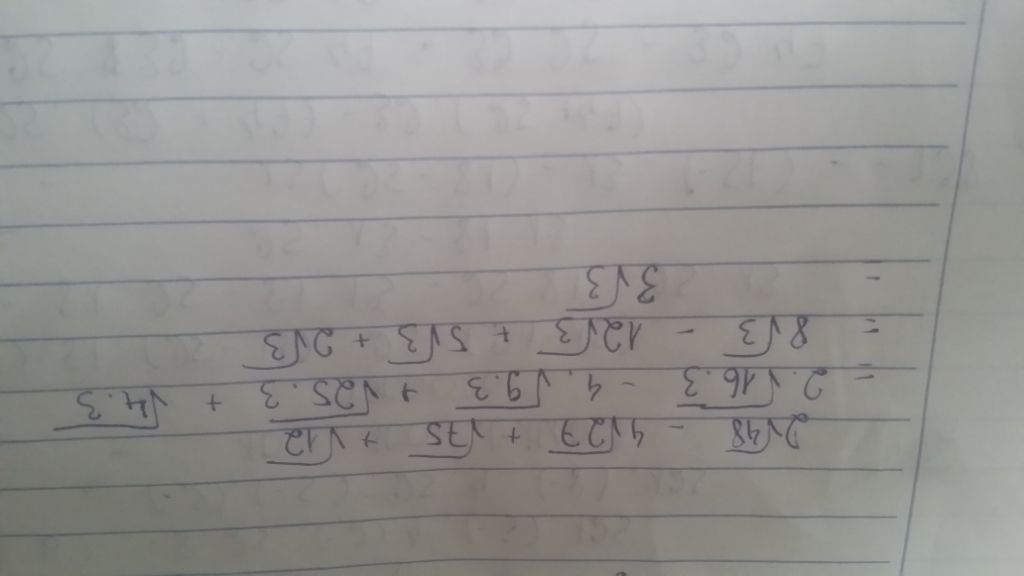 2√48 - 4√27 + √75 + √12
= 2.√16.3 - 4.√9.3 + √25.3 + √4.3
= 8√3 - 12√3 + 5√3 + 2√3
= 3√3